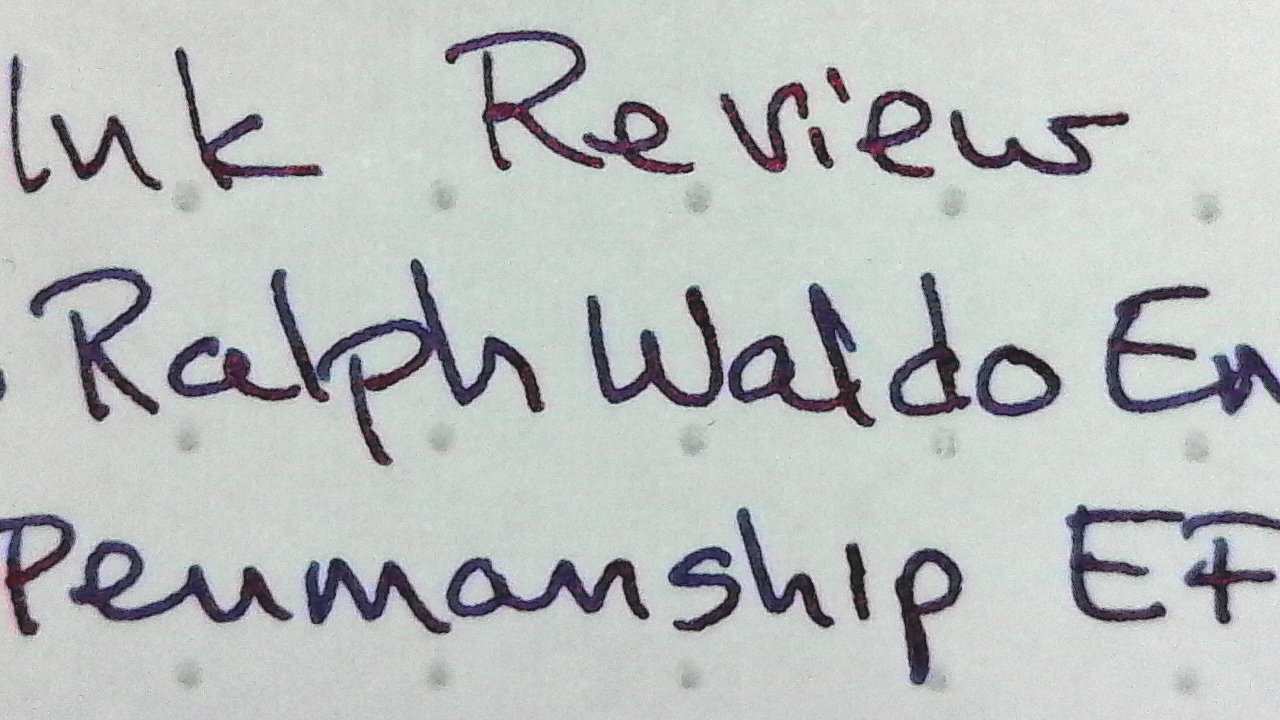 Ink Review
Ralph Waldo Em
Penmanship EF